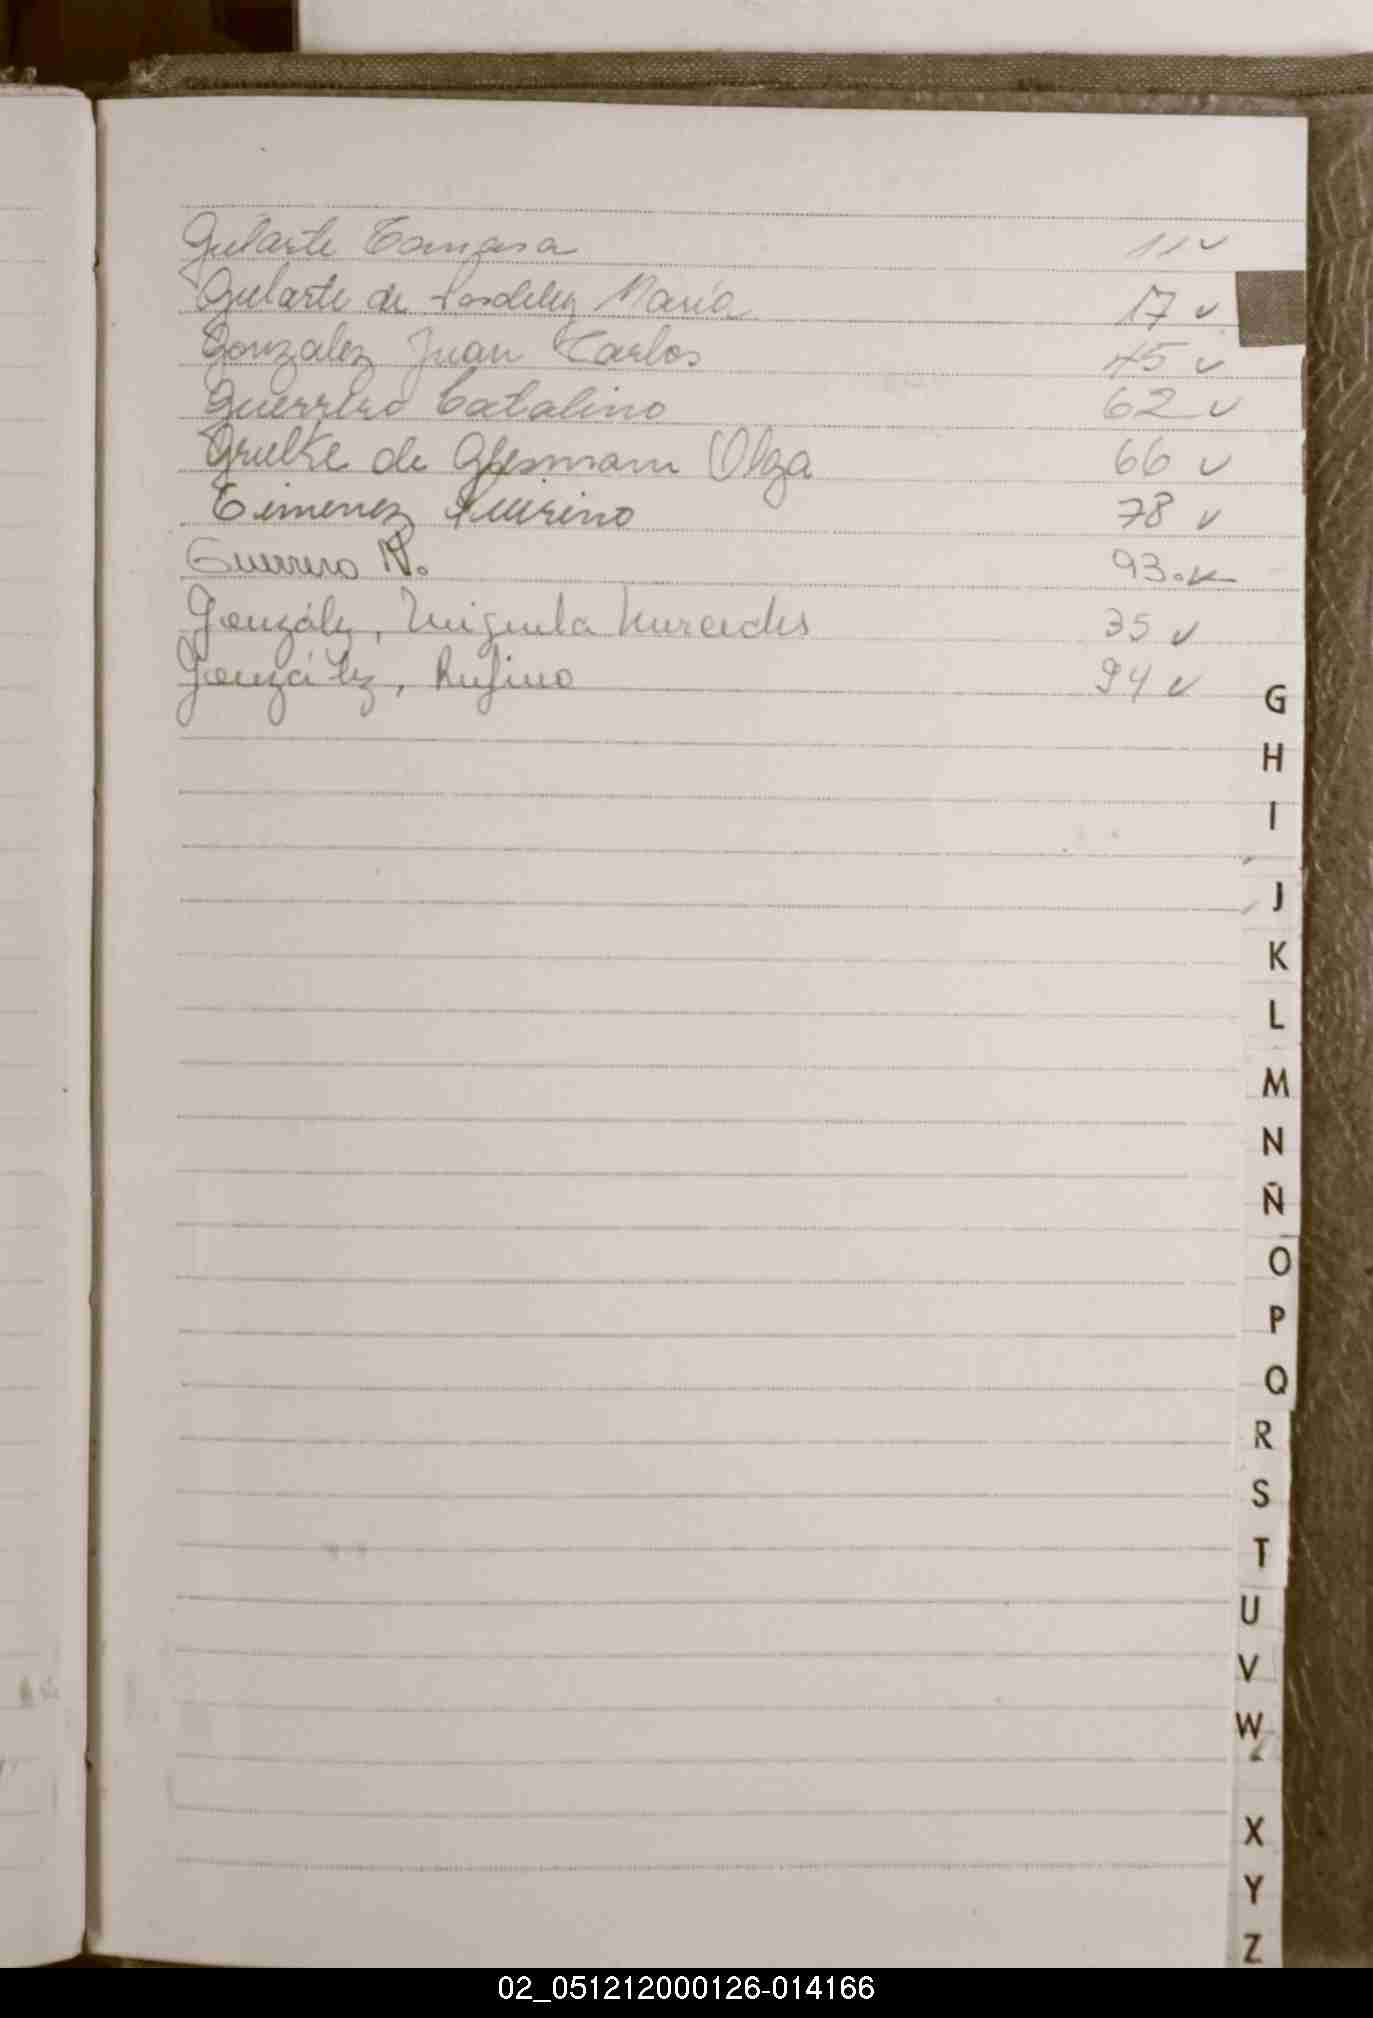 Gularte Tomasa 11 ✓
Gularte de María 17 ✓
Gonzalez Juan Carlos 45 ✓
Guerrero Catalino 62 ✓
Gruelke de Olga 66 ✓
Gimenez Quirino 78 ✓
Guerrero N. 93.
González, Miguela Mercedes 35 ✓
González, Rufino 94 ✓
G
H
I
J
K
L
M
N
Ñ
O
P
Q
R
S
T
U
V
W
X
Y
Z
02_051212000126-014166